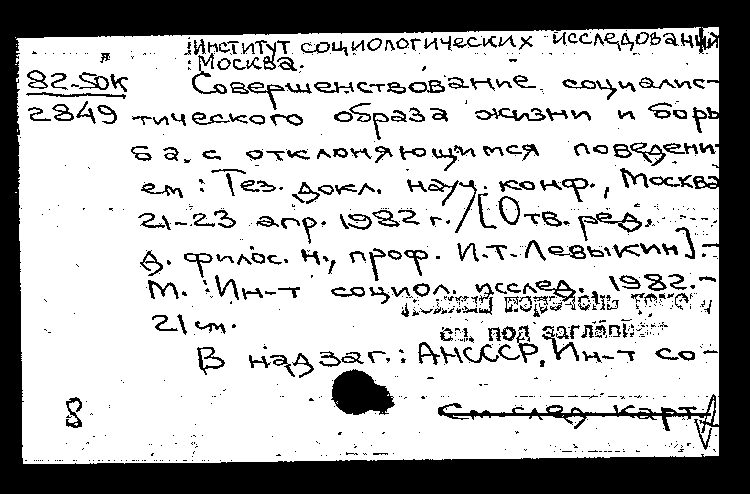 Институт социологических исследований
Москва.
82-50К Совершенствование социалис-
2849 тического образа жизни и борь
ба с отклоняющимся поведени
ем: Тез. докл. науч. конф., Москва
21-23 апр. 1982 г. / [Отв. ред.
д. филос. н., проф. И.Т. Левыкин]. -
М.: Ин-т социол. исслед., 1982. -
Полный перечень томов
21 см. см. под заглавием
В надзаг.: АН СССР, Ин-т со-
8 См. след. карт.